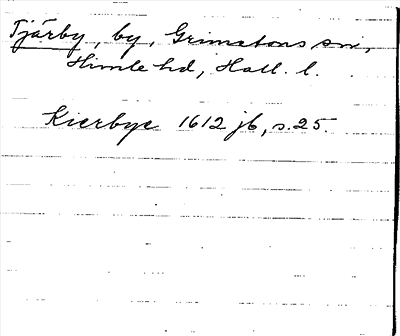 Tjärby, by, Grimetons sn,
Himle hd, Hall. l.
Kierbye 1612 jb, s. 25.